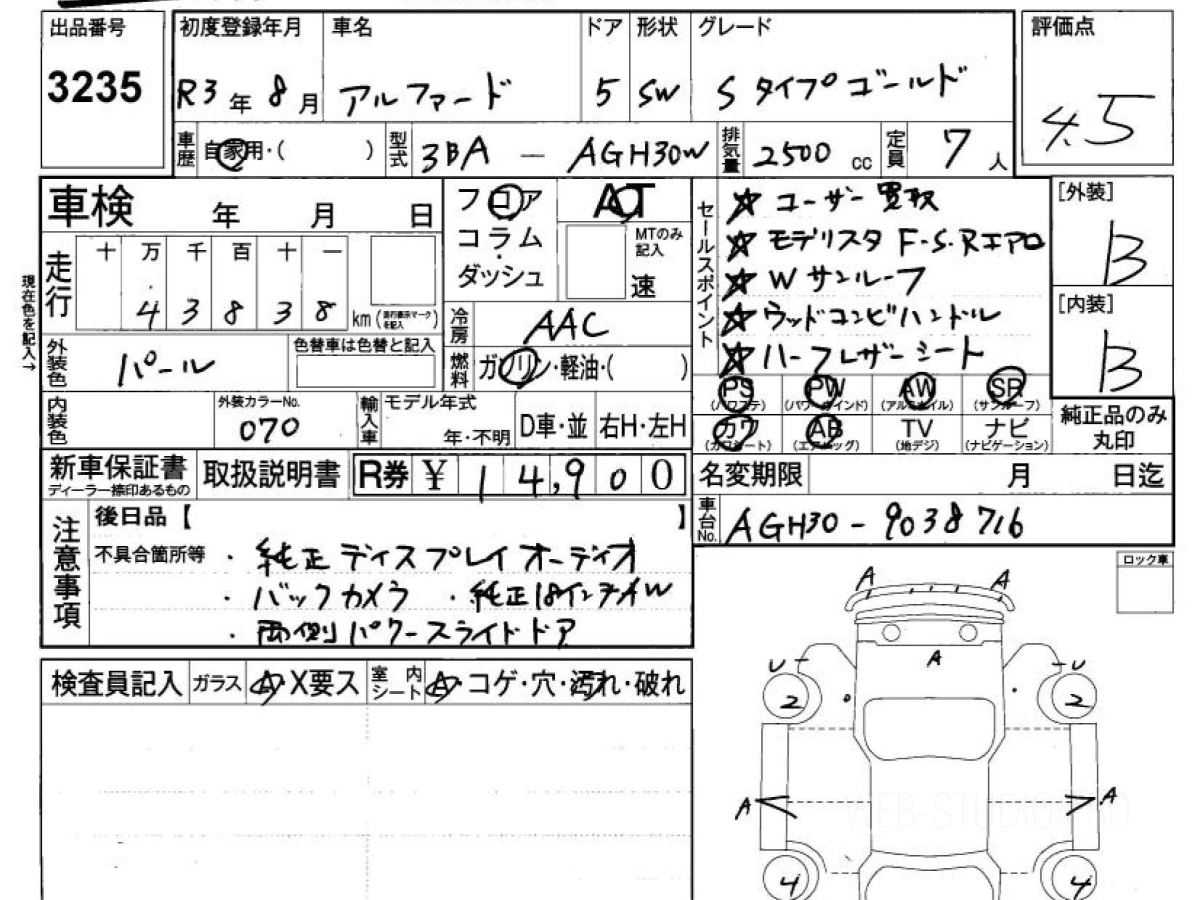 出品番号
3235
初度登録年月 車名 ドア 形状 グレード 評価点
R3年 8月 アルファード 5 SW Sタイプゴールド
4.5
車歴 自家用・( ) 型式 3BA - AGH30W 排気量 2500 cc 定員 7人
車検 年 月 日
現在色を記入→
走行 十 万 千 百 十 一
4 3 8 3 8 km
外装色 パール 色替車は色替と記入
内装色 外装カラーNo. 070 輸入車 モデル年式 年・不明 D車・並 右H・左H
フロア AT
コラム・ MTのみ記入
ダッシュ 速
冷房 AAC
燃料 ガソリン・軽油・( )
セールスポイント
☆ユーザー買取
☆モデリスタF・S・Rエアロ
☆Wサンルーフ
☆ウッドコンビハンドル
☆ハーフレザーシート
[外装]
B
[内装]
B
PS PW AW SR
(パワステ) (パワーウインド) (アルミホイル) (サンルーフ)
カワ AB TV ナビ
(カワシート) (エアバッグ) (地デジ) (ナビゲーション)
純正品のみ
丸印
新車保証書 取扱説明書 R券 ¥ 14,900
ディーラー捺印あるもの
名変期限 月 日迄
車台No. AGH30-9038716
注意事項
後日品【 】
不具合箇所等 ・純正ディスプレイオーディオ
・バックカメラ ・純正18インチAW
・両側パワースライドドア
ロック車
検査員記入 ガラス A・X要ス 室内シート A・コゲ・穴・汚れ・破れ
A A
A
U U
2 2
A A
4 4
WEB-STUDIO.PRO